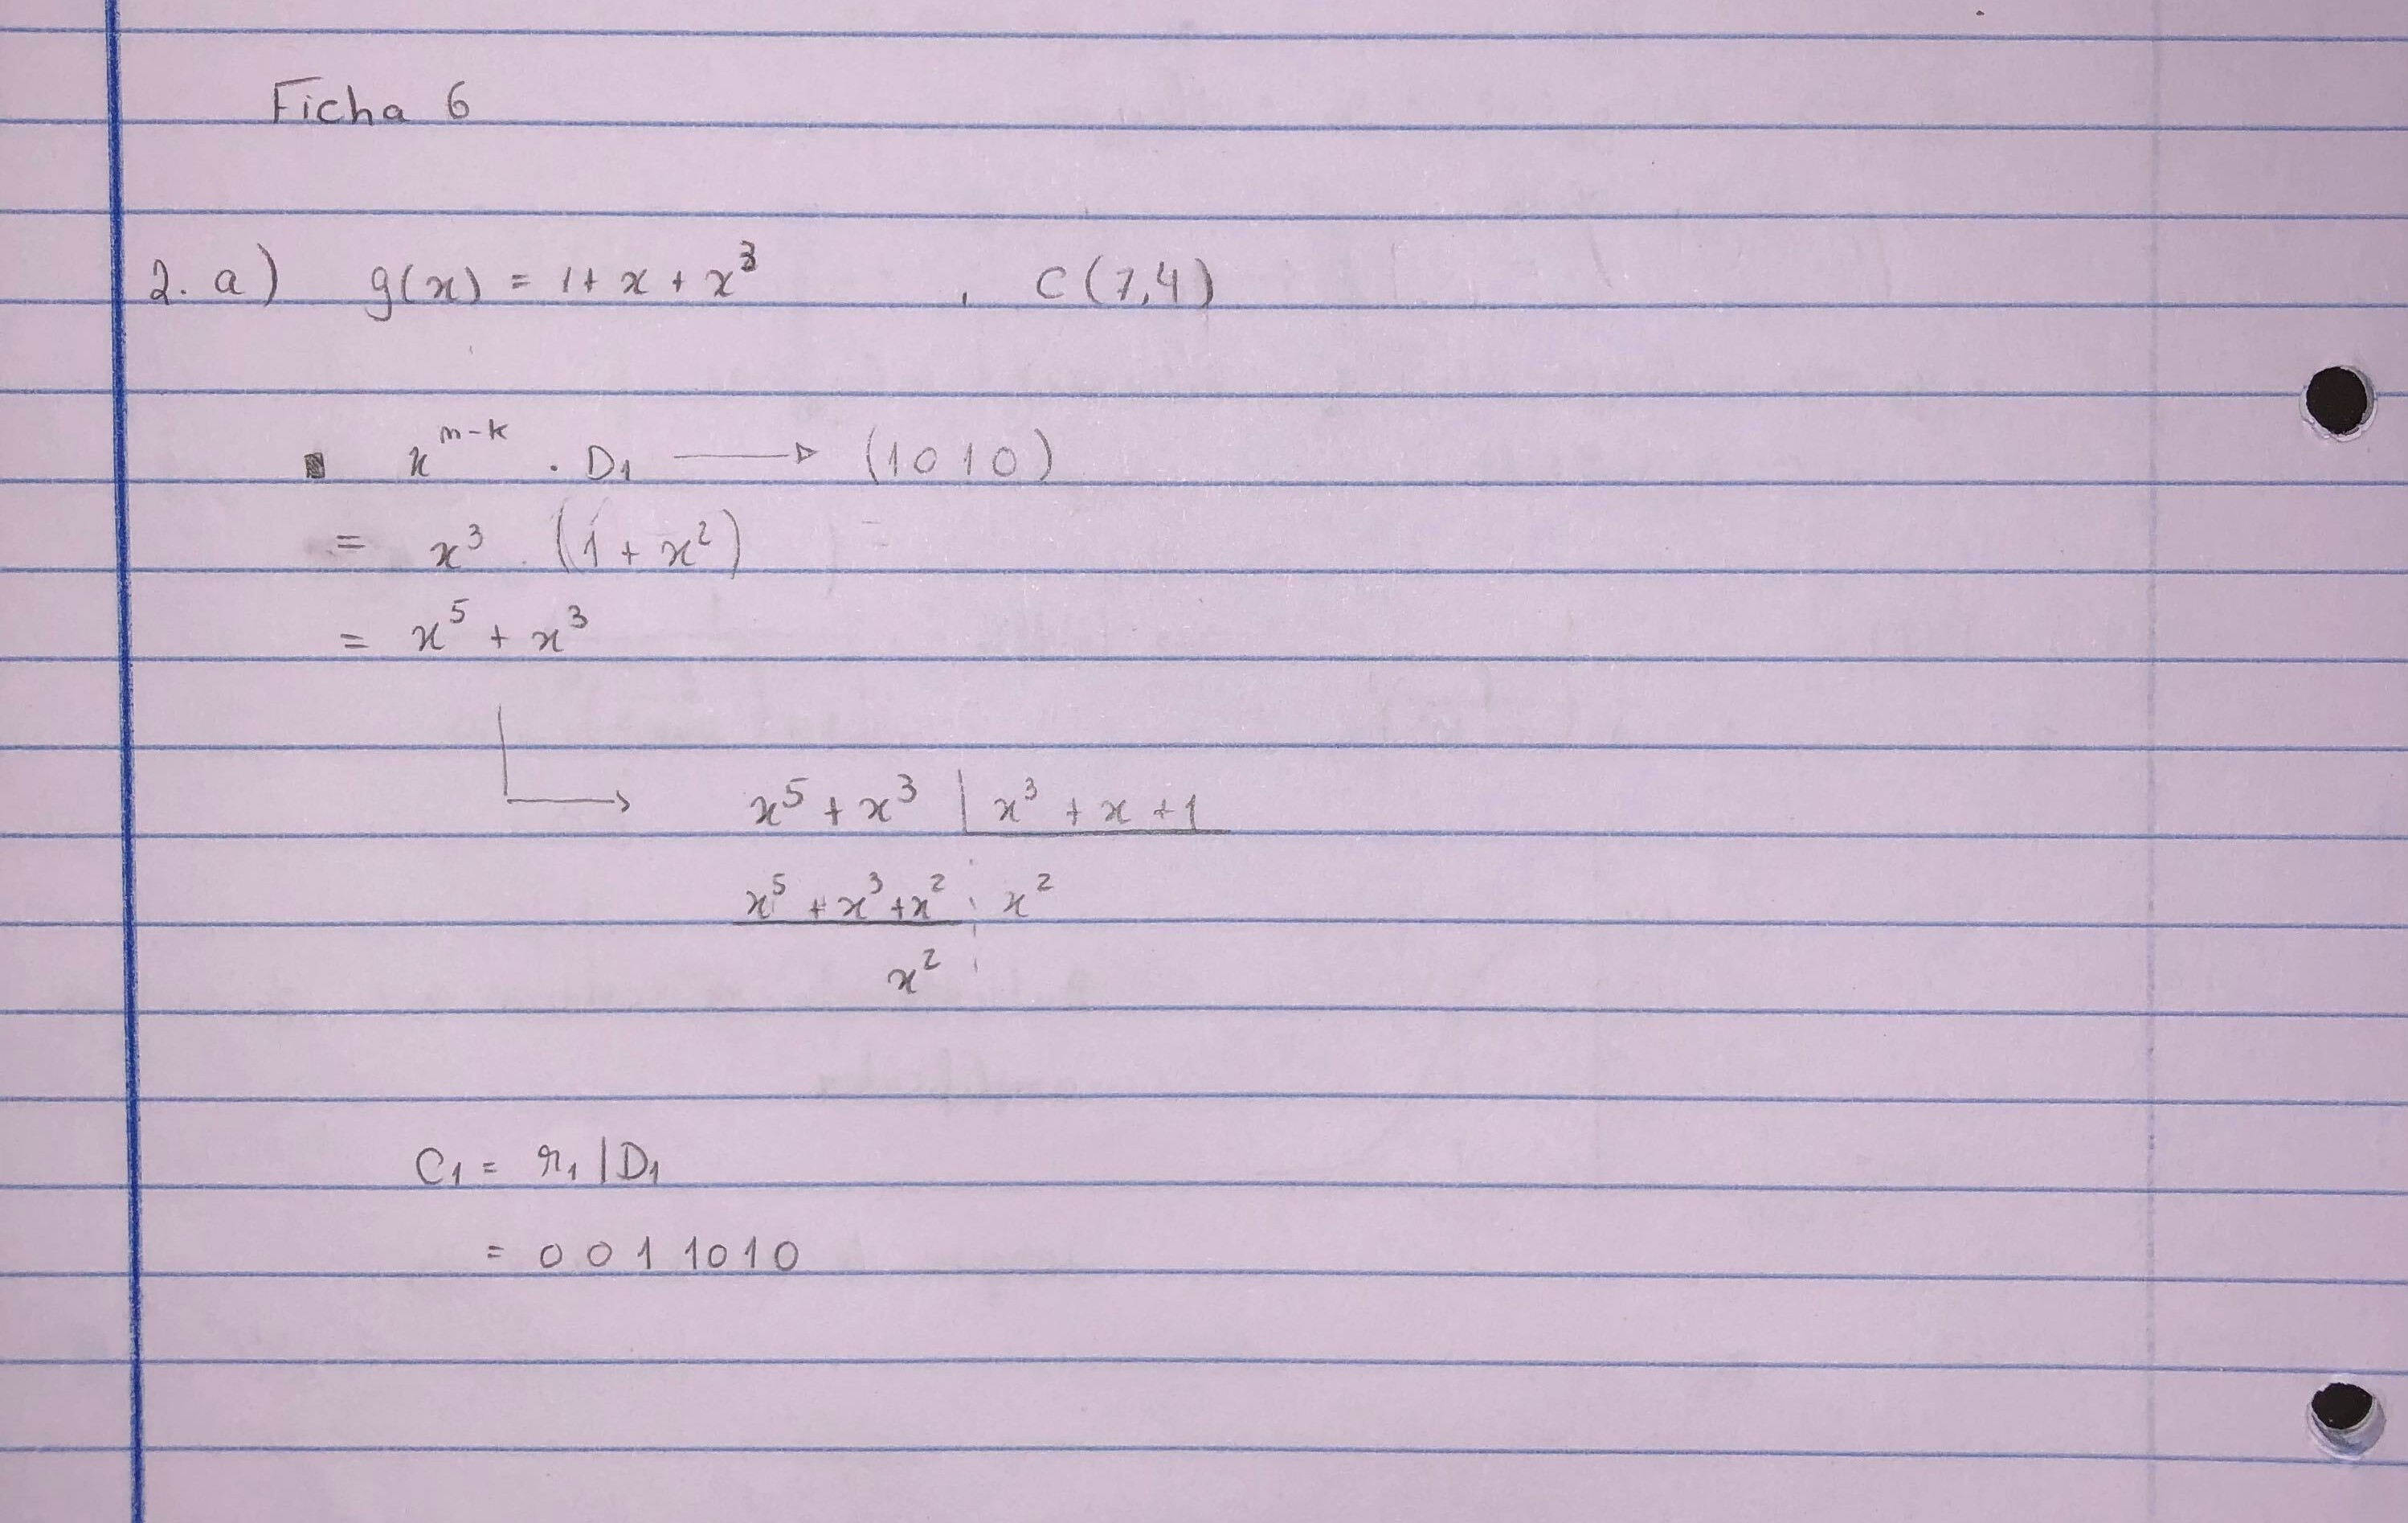 Ficha 6
2. a) g(x) = 1 + x + x³ , C(7,4)
x^(n-k) . D₁ → (1010)
= x³ . (1 + x²)
= x⁵ + x³
x⁵ + x³ | x³ + x + 1
x⁵ + x³ + x² x²
x²
C₁ = r₁ | D₁
= 0 0 1 1 0 1 0